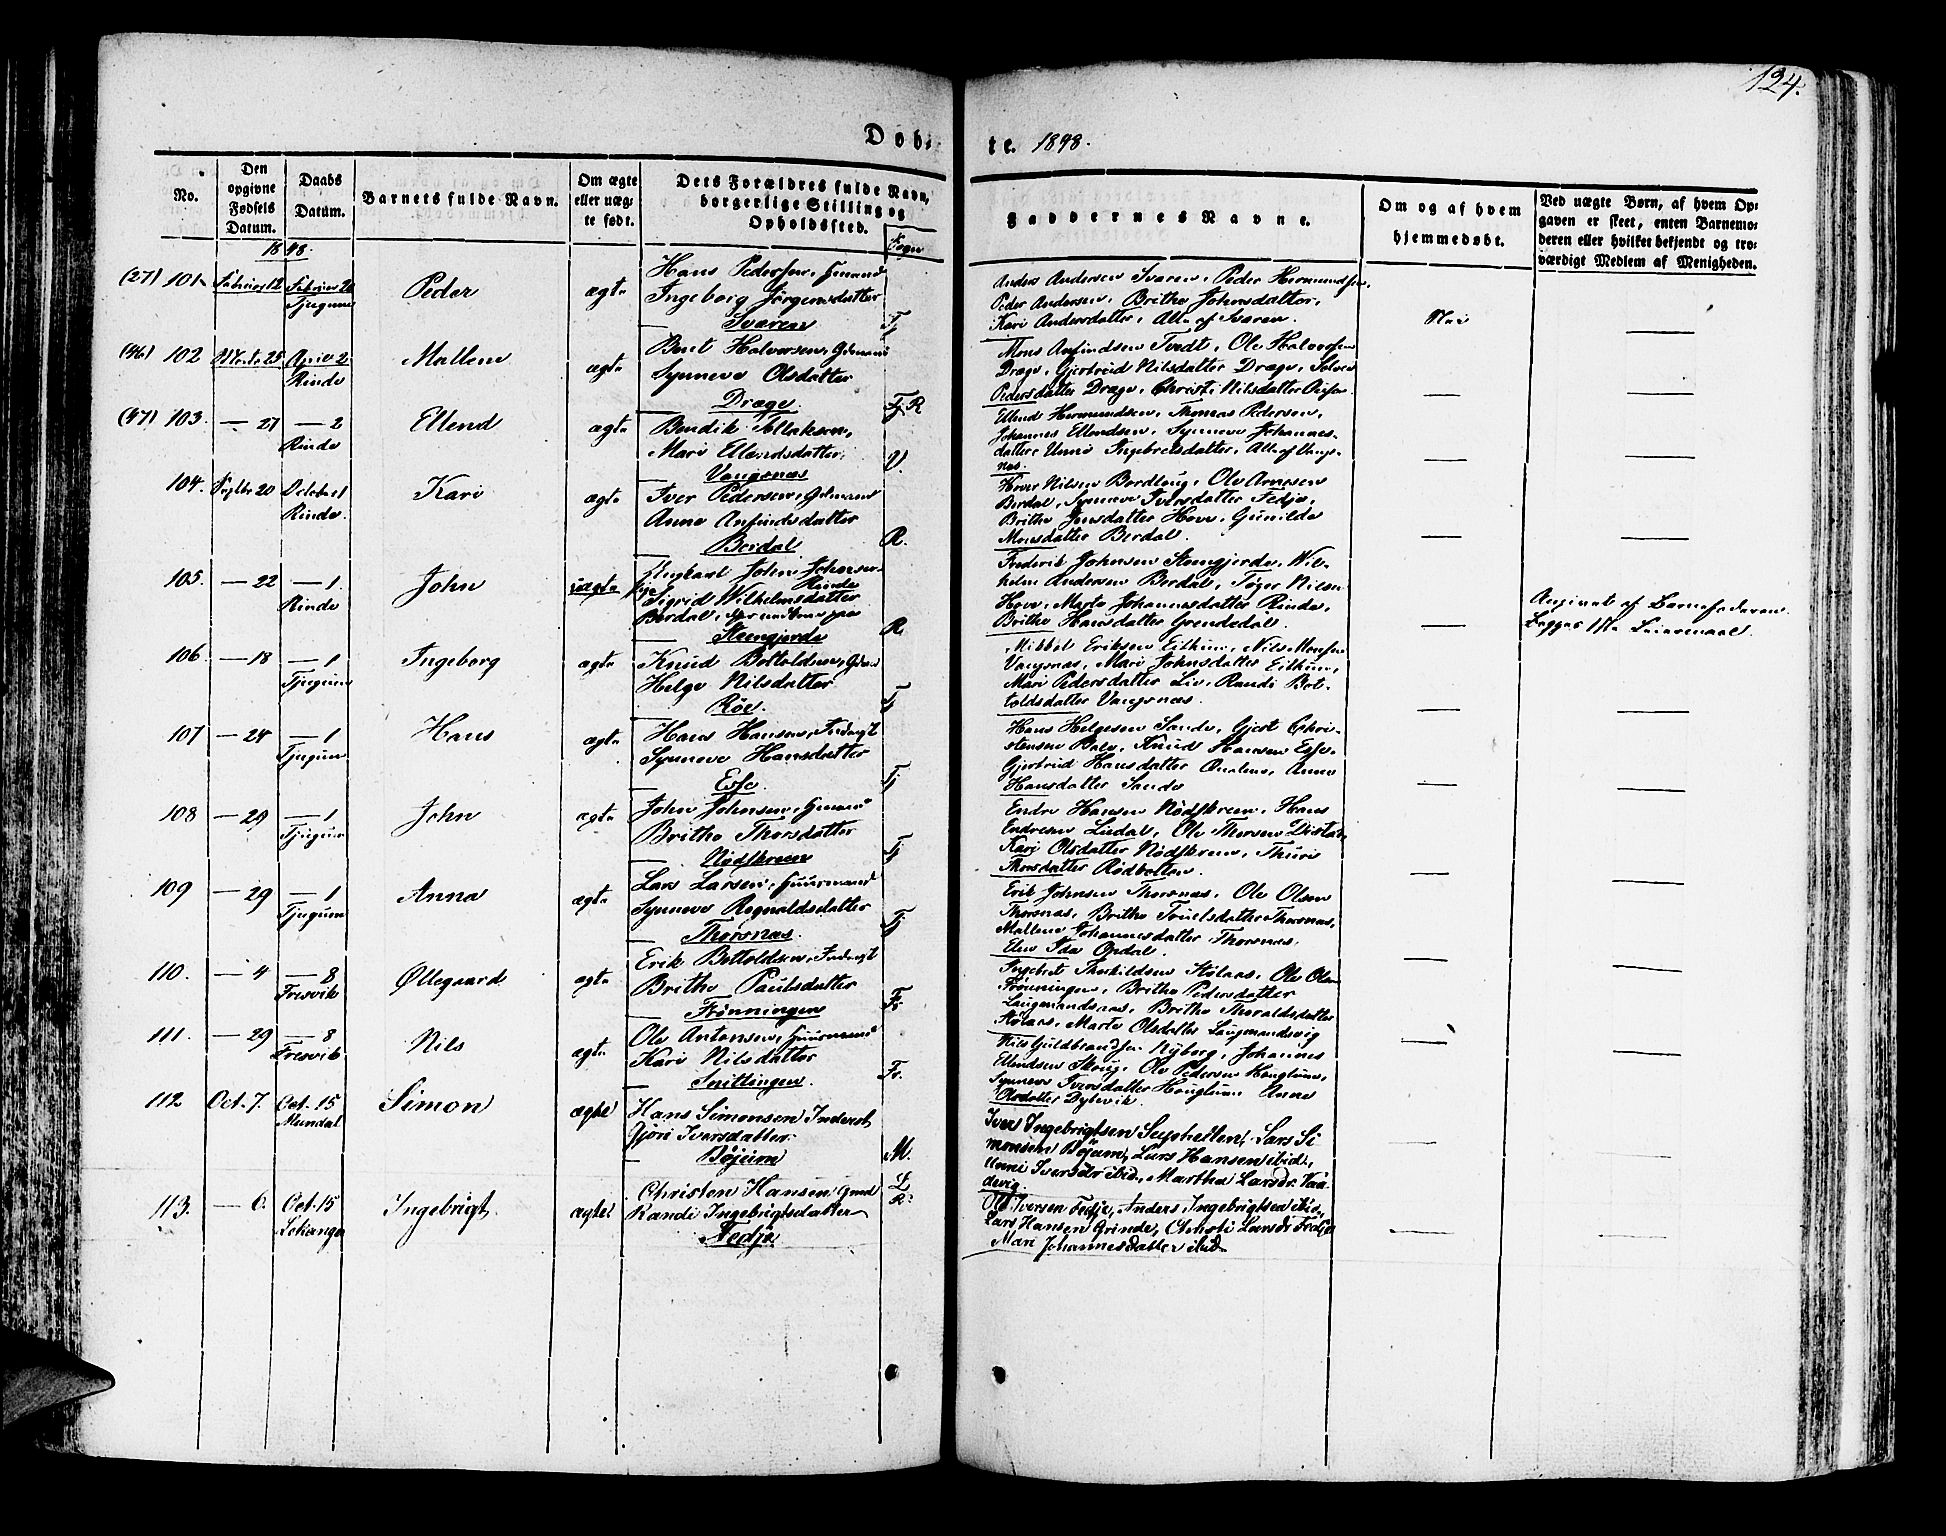 124.
Døb-
te. 1848.
No.
Den opgivne Fødsels Datum.
Daabs Datum.
Barnets fulde Navn.
Om ægte eller uæg-te født.
Dets Forældres fulde Navn, borgerlige Stilling og Opholdssted.
Sogn
Faddernes Navne.
Om og af hvem hjemmedøbt.
Ved uægte Børn, af hvem Op-
gaven er skeet, enten Barnemo-
deren eller hvilket bekjendt og tro-
værdigt Medlem af Menigheden.
1848.
(27) 101. Februar 12 Februar 20 Tjugum Peder ægte
Hans Pedersen, Huusmand
Ingeborg Jørgensdatter
Svaren Tj
Anders Andersen Svaren, Peder Hermundsen,
Peder Andersen, Brithe Johnsdatter,
Kari Andersdatter, Alle af Svaren.
Nei
(46) 102 Marts 25 April 2 Rinde Mallene ægte
Bent Halvorsen, Gdmand
Synneve Olsdatter
Drage. Tj. R
Mons Anfindsen Tvedt, Ole Halvorsen
Drage, Gjertrud Nilsdatter Drage, Solvei
Pedersdatter Drage, Christi Nilsdatter
(47) 103. — 27 — 2 Rinde Ellend ægte
Bendik
Mari Ellendsdatter,
Vangsnæs V.
Ellend Hermundsen, Thomas Pedersen,
Johannes Ellendsen, Synneve Johannes-
datter, Unni Ingebretsdatter, Alle af Vangs-
næs.
104. Septbr 20 October 1 Rinde. Kari ægte
Iver Pedersen, Gdmand
Anne Anfindsdatter
Berdal R.
Hover Nilsen Bordlung, Ole Arnesen
Berdal, Synneve Iversdatter Fedje,
Brithe Jensdatter Hove, Gunilde
Monsdatter Berdal.
105. — 22 — 1. Rinde John uægte
Ungkarl John Johansen Rinde
Pige Sigrid Wilhelmsdatter
Berdal,
Steengjerde R.
Frederik Johnsen Steengjerde, Wil-
helm Andersen Berdal, Tøger Nilsen
Hove, Marte Johannesdatter Rinde,
Brithe Hansdatter Grendedal.
Angivet af Barnefaderen.
Begges 1ste Leiermaal.
106. — 18 — 1 Tjugum Ingeborg ægte
Knud Botoldsen, Gdmand
Helge Nilsdatter
Röe. Tj
Mikkel Eriksen Eithun, Nils Monsen
Vangsnæs, Mari Johnsdatter Eithun,
Mari Pedersdatter Lie, Randi Bot-
toldsdatter Vangsnæs.
107 — 24 — 1 Tjugum Hans ægte
Hans Hansen, Inderst
Synneve Hansdatter
Esse. Tj
Hans Helgesen Sande, Gjest Chri-
stensen Bale, Knud Hansen Esse,
Gjertrud Hansdatter Qvalene, Anne
Hansdatter Sande
108 — 29 — 1 Tjugum John ægte
John Johnsen, Huusmand
Brithe Thorsdatter
Nødskreen Tj
Endre Hansen Nödskreen, Hans
Endresen Liedal, Ole Thorsen
Kari Olsdatter Nödskreen, Thuri
Thorsdatter Rödbotten.
109 — 29 — 1 Tjugum Anna ægte
Lars Larsen, Huusmand
Synneve Regnaldsdatter
Thorsnæs. Tj
Erik Johnsen Thorsnæs, Ole Olsen
Thorsnæs, Brithe Trulsdatter Thorsnæs,
Mallene Johannesdatter Thorsnæs,
Elen Ida Opdal.
110. — 4 — 8 Fresvik Øllegaard ægte
Erik Bottoldsen, Inderst
Brithe Paulsdatter
Frönningen Fr.
Ingebret Thorkildsen Stölaas, Ole Olsen
Frönningen, Brithe Pedersdatter
Laugmandsnæs, Brithe Thoraldsdatter
Stölaas, Marte Olsdatter Laugmandsvig
111. — 29 — 8 Fresvik Nils ægte
Ole Antonsen, Huusmand
Kari Nilsdatter
Snittingen. Fr.
Nils Guldbrandsen Nyborg, Johannes
Ellendsen Skoug, Ole Pedersen Houglum,
Synneve Iversdatter Houglum Anne
Olsdatter Dybevik.
112 Oct. 7. Oct. 15 Mundal Simon ægte
Hans Simonsen Inderst
Gjøri Iversdatter
Bøjeim M.
Iver Ingebrigtsen Suphellen, Lars Si
monsen Bøjeim, Lars Hansen ibid,
Unni Iversdr ibid, Martha Larsdr.
113. — 6. Oct. 15 Ingebrigt. ægte
Christen Hansen Gmd
Randi Ingebrigtsdatter
Fedje L R.
Ole Iversen Fedje, Anders Ingebrigtsen ibid,
Lars Hansen Grinde, Christi Larsdr Fedje
Mari Johannesdatter ibid.